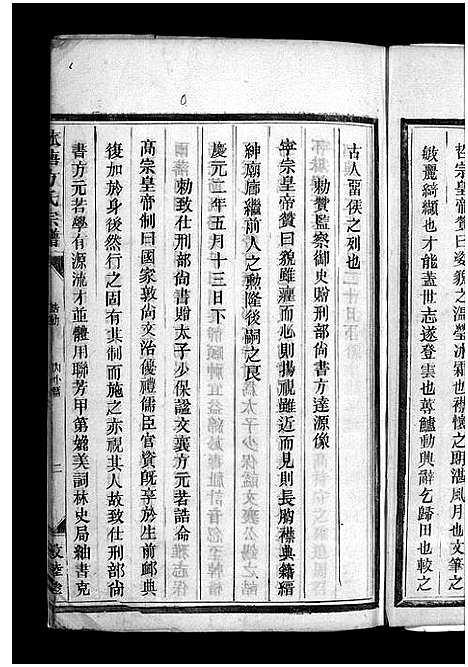 哲宗皇帝贊曰姿貌之温瑩冰霜也襟懷之明湛風月也文筆之
皷麗綺纈也才能蓋世志遂登雲也蓴鱸動興辭乞歸田也較之
古人畱侯之列也
勅贊監察御史贈刑部尚書方達源像
寧宗皇帝贊曰貌雖癯而心則揚視雖近而見則長胸襟典籍縉
紳廟廊繼前人之勲隆後嗣之良
慶元二年五月十三日下
勅致仕刑部尚書贈太子少保謚文襄方元若誥命
高宗皇帝制曰國家敦尚文治優禮儒臣官資旣享於生前䘏典
復加於身後然行之固有其制而施之亦視其人故致仕刑部尚
書方元若學有源流才並體用聯芳甲第媲美詞林史局紬書克
方氏宗譜
誥勅
二
敦睦堂